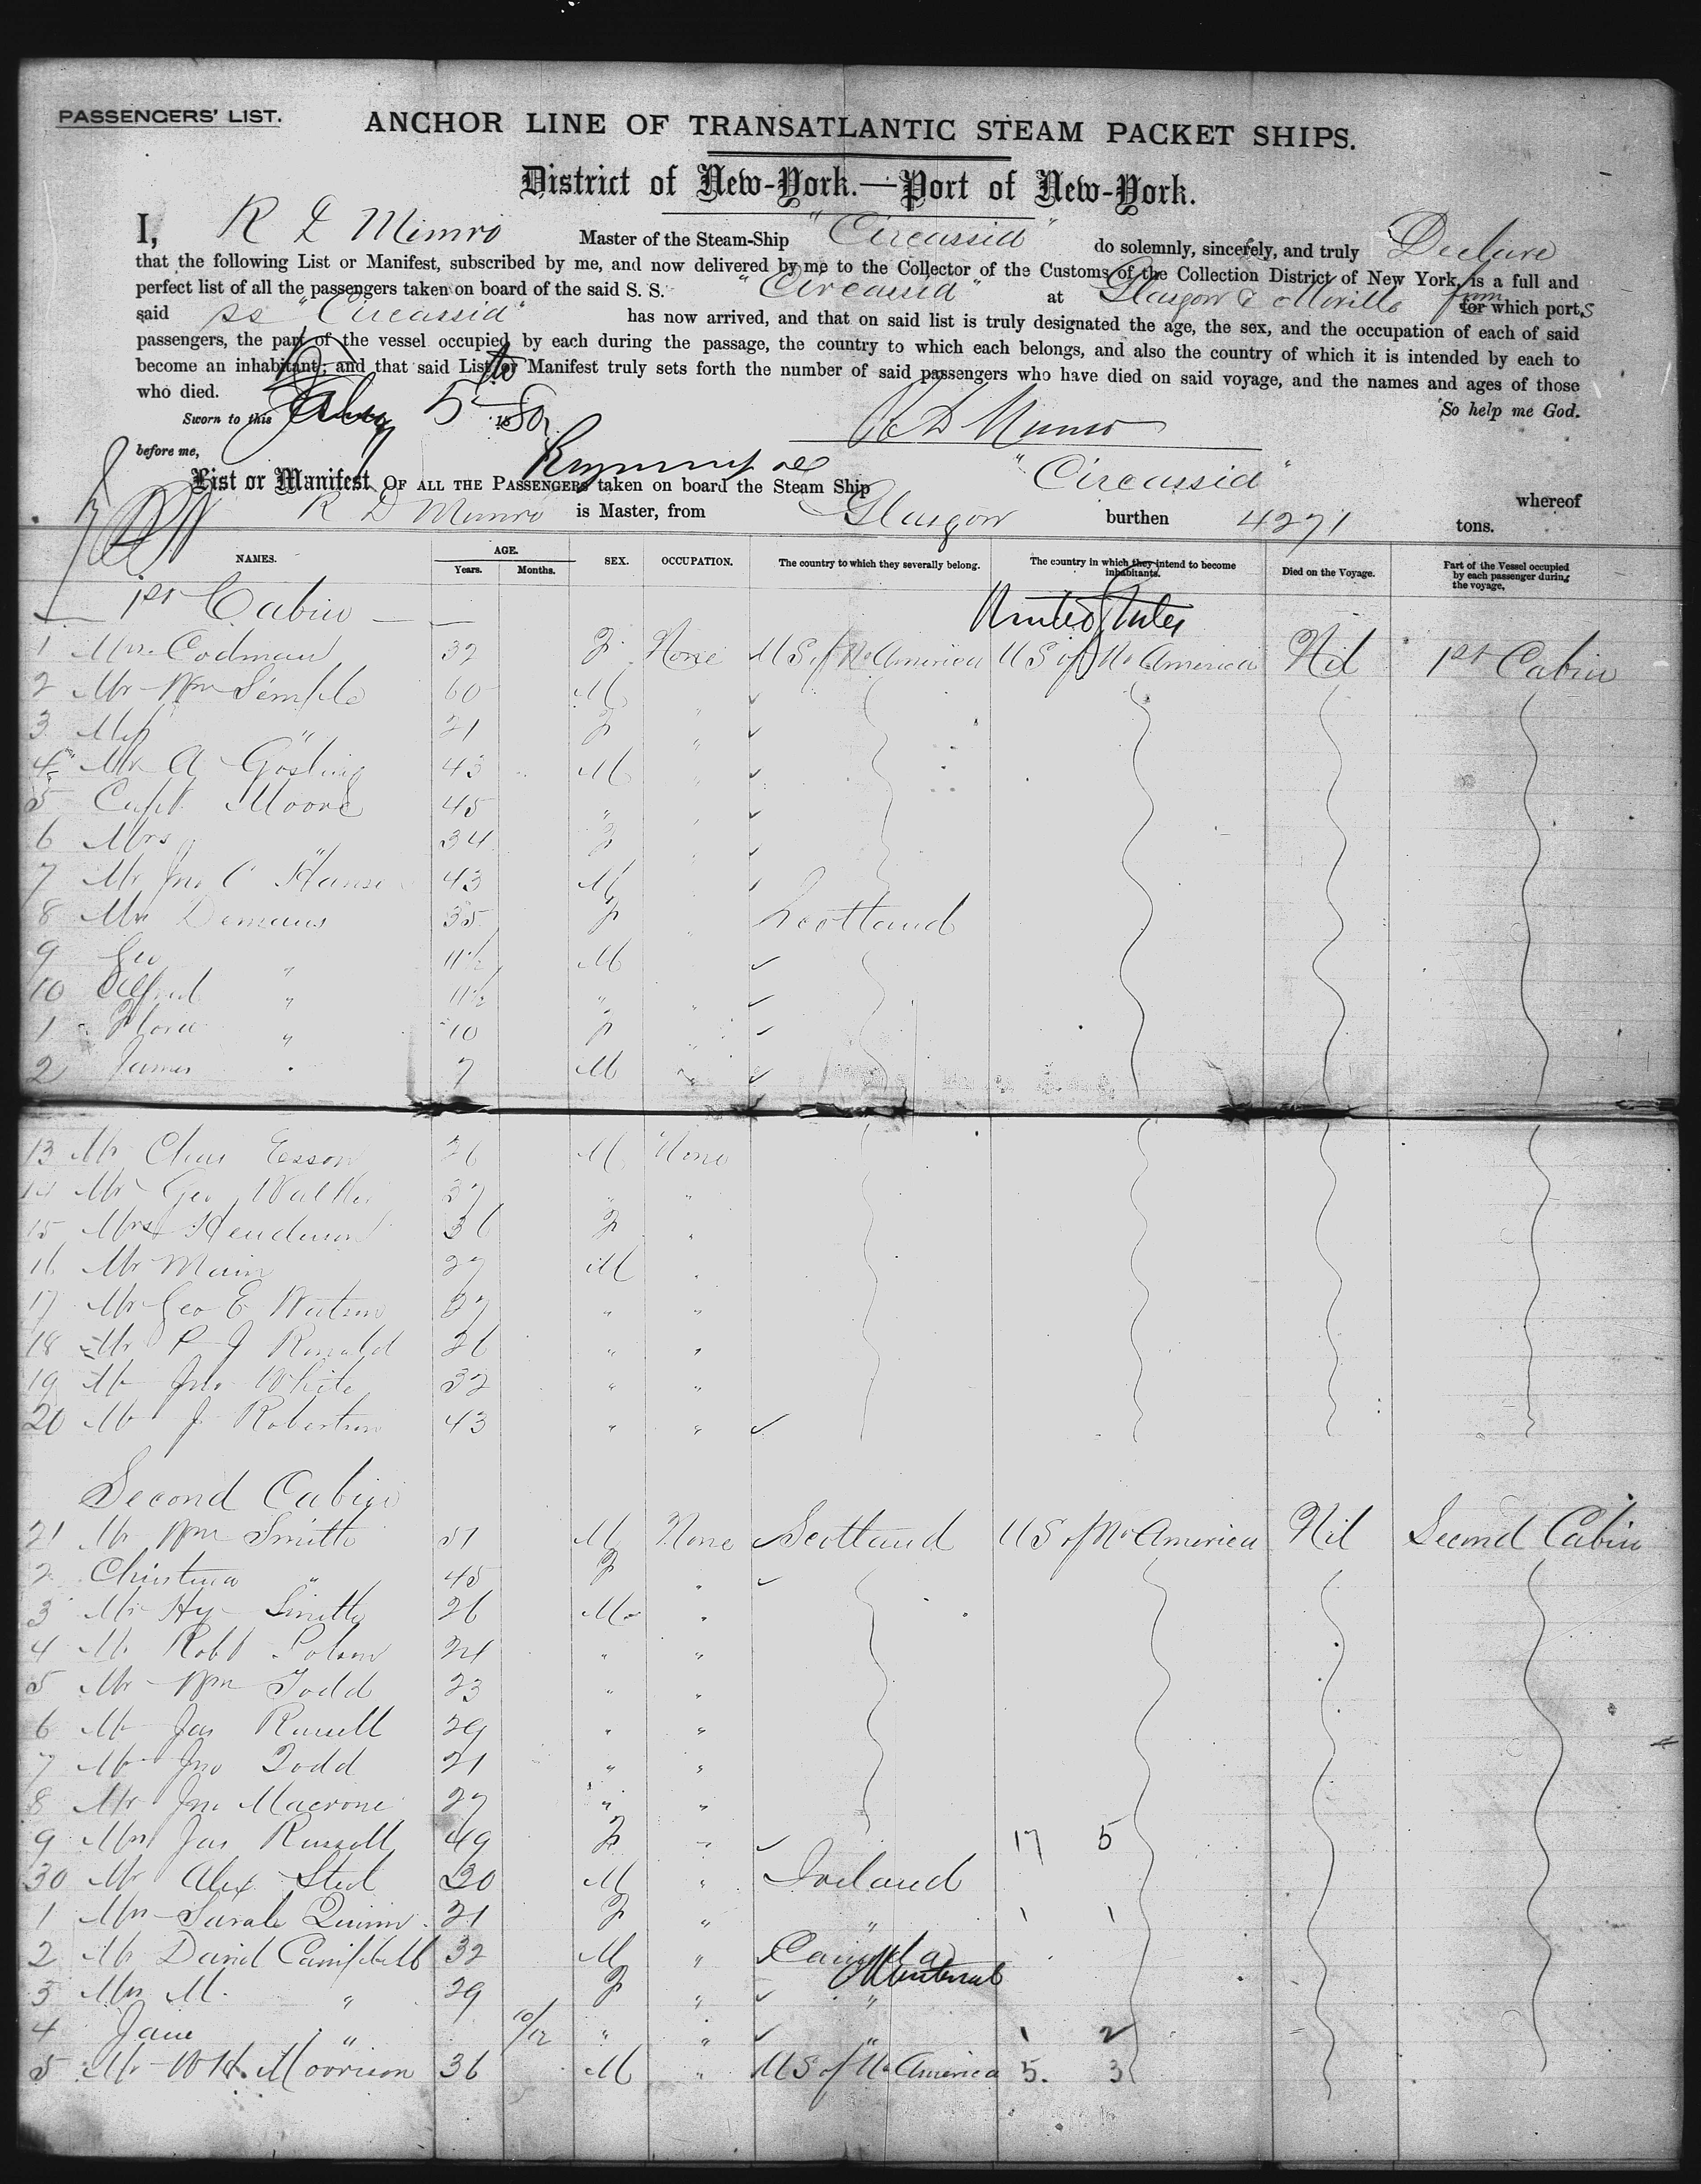 PASSENGERS' LIST.
ANCHOR LINE OF TRANSATLANTIC STEAM PACKET SHIPS.
District of New-York.—Port of New-York.
I, R D Munro Master of the Steam-Ship "Circassia" do solemnly, sincerely, and truly Declare
that the following List or Manifest, subscribed by me, and now delivered by me to the Collector of the Customs of the Collection District of New York, is a full and
perfect list of all the passengers taken on board of the said S. S. "Circassia" at Glasgow & Moville from for which ports
said ss "Circassia" has now arrived, and that on said list is truly designated the age, the sex, and the occupation of each of said
passengers, the part of the vessel occupied by each during the passage, the country to which each belongs, and also the country of which it is intended by each to
become an inhabitant; and that said List or Manifest truly sets forth the number of said passengers who have died on said voyage, and the names and ages of those
who died. So help me God.
Sworn to this 5 1880 R D Munro
before me,
List or Manifest OF ALL THE PASSENGERS taken on board the Steam Ship "Circassia" whereof
R D Munro is Master, from Glasgow burthen 4271 tons.
NAMES. AGE. Years. Months. SEX. OCCUPATION. The country to which they severally belong. The country in which they intend to become inhabitants. Died on the Voyage. Part of the Vessel occupied by each passenger during the voyage.
1st Cabin United States
1 Mrs Codman 32 F None U S of No America U S of No America Nil 1st Cabin
2 Mr Wm Semple 60 M " ✓
3 Miss " 21 F " ✓
4 Mr A Gosling 43 M " ✓
5 Capt Moore 45 " " ✓
6 Mrs " 34 F " ✓
7 Mr Jno C 43 M ✓
8 Mrs Demaus 35 F " Scotland
9 Geo " 11½ M ✓
10 Alfred " 11½ " " ✓
1 Flora " 10 F " ✓
2 James " 7 M " ✓
13 Mr Chas Esson 26 M None
14 Mr Geo Walker 37 " "
15 Mrs Henderson 36 F "
16 Mr Main 27 M "
17 Mr Geo E Watson 27 " "
18 Mr P J Ronald 26 " "
19 Mr Jno White 32 " "
20 Mr J Robertson 43 " " ✓
Second Cabin
21 Mr Wm Smith 51 M None Scotland U S of No America Nil Second Cabin
2 Christina " 45 F " ✓
3 Mr Hy Smith 26 M "
4 Mr Robt 24 " "
5 Mr Wm Todd 23 " "
6 Mr Jas Russell 29 " "
7 Mr Jno Todd 21 " "
8 Mr Jno Macrone 27 " "
9 Mrs Jas Russell 49 F " ✓ 17 5
30 Mr Alex Steel 30 M " Ireland
1 Mrs Sarah Quinn 21 F " " 1 1
2 Mr David Campbell 32 M " Canada Montreal
3 Mrs M. " 29 F " ✓ "
4 Jane " 10/12 " " ✓ " 1 2
5 Mr W H Morrison 36 M " U S of No America 5. 3